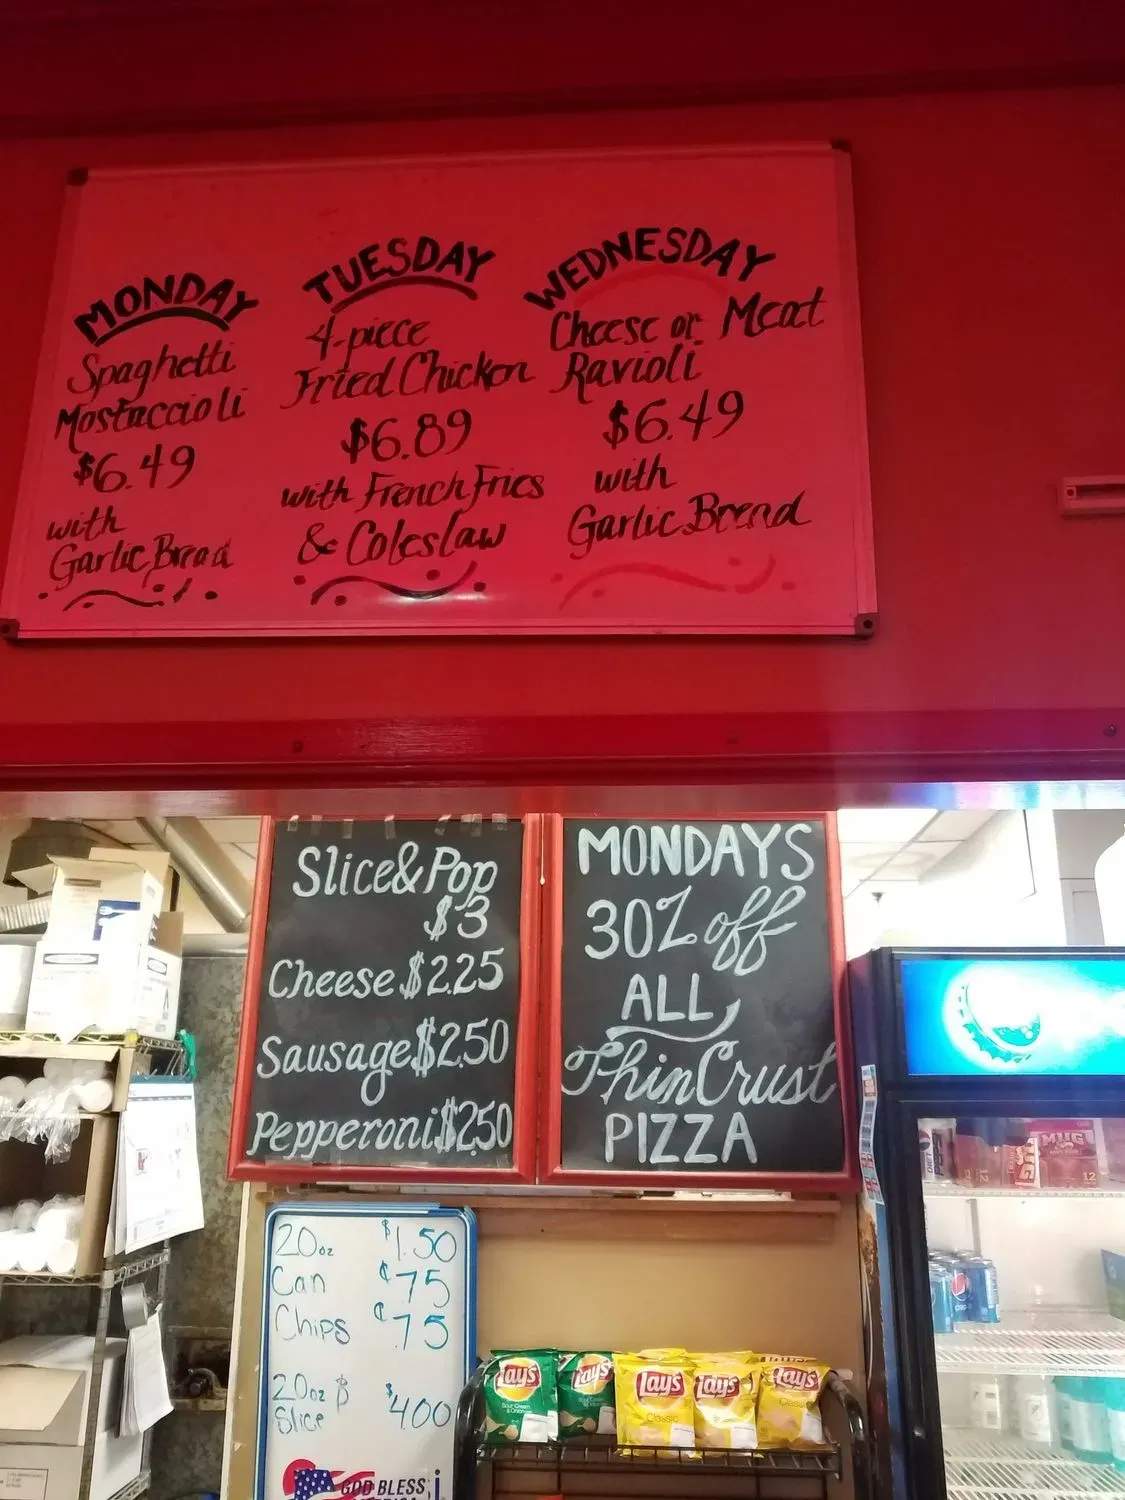 MONDAY
Spaghetti
Mostaccioli
$6.49
with
Garlic Bread
TUESDAY
4-piece
Fried Chicken
$6.89
with French Fries
& Coleslaw
WEDNESDAY
Cheese or Meat
Ravioli
$6.49
with
Garlic Bread
Slice & Pop
$3
Cheese $2.25
Sausage $2.50
Pepperoni $2.50
MONDAYS
30% off
ALL
Thin Crust
PIZZA
20oz $1.50
Can ¢75
Chips ¢75
20oz &
Slice $4.00
GOD BLESS
Lay's
Sour Cream
& Onion
Lay's
Lay's
Classic
Lay's
Lay's
Classic
DIET
MUG
MUG
12